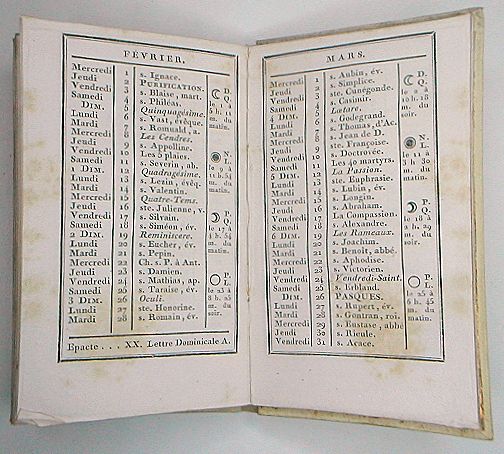 FÉVRIER.
Mercredi 1 s. Ignace.
Jeudi 2 PURIFICATION.
Vendredi 3 s. Blaise, mart.
Samedi 4 s. Philéas.
DIM. 5 Quinquagésime.
Lundi 6 s. Vast, évêque.
Mardi 7 s. Romuald, a.
Mercredi 8 Les Cendres.
Jeudi 9 s. Appolline.
Vendredi 10 Les 5 plaies.
Samedi 11 s. Severin, ab.
1 DIM. 12 Quadragésime.
Lundi 13 s. Lezin, évêq.
Mardi 14 s. Valentin.
Mercredi 15 Quatre-Tems.
Jeudi 16 ste. Julienne, v.
Vendredi 17 s. Silvain.
Samedi 18 s. Siméon, év.
2 DIM. 19 Reminiscere.
Lundi 20 s. Eucher, év.
Mardi 21 s. Pepin.
Mercredi 22 Ch. s. P. à Ant.
Jeudi 23 s. Damien.
Vendredi 24 s. Mathias, ap.
Samedi 25 s. Taraise, év.
3 DIM. 26 Oculi.
Lundi 27 ste. Honorine.
Mardi 28 s. Romain, év.
D.
Q.
matin.
N.
L.
le 9 à
11 h. 54
m. du
matin.
P.
Q.
le 17 à
m. du
soir.
P.
L.
m. du
soir.
Epacte . . . XX. Lettre Dominicale A.
MARS.
Mercredi 1 s. Aubin, év.
Jeudi 2 s. Simplice.
Vendredi 3 ste. Cunégonde.
Samedi 4 s. Casimir.
4 DIM. 5 Lætare.
Lundi 6 s. Godegrand.
Mardi 7 s. Thomas, d'Ac.
Mercredi 8 s. Jean de D.
Jeudi 9 ste. Françoise.
Vendredi 10 s. Doctrovée.
Samedi 11 Les 40 martyrs.
5 DIM. 12 La Passion.
Lundi 13 ste. Euphrasie.
Mardi 14 s. Lubin, év.
Mercredi 15 s. Longin.
Jeudi 16 s. Abraham.
Vendredi 17 La Compassion.
Samedi 18 s. Alexandre.
6 DIM. 19 Les Rameaux.
Lundi 20 s. Joachim.
Mardi 21 s. Benoît, abbé
Mercredi 22 s. Aphodise.
Jeudi 23 s. Victorien.
Vendredi 24 Vendredi-Saint.
Samedi 25 s. Irbland.
DIM. 26 PASQUES.
Lundi 27 s. Rupert, év.
Mardi 28 s. Gontran, roi.
Mercredi 29 s. Eustase, abbé
Jeudi 30 s. Rieule.
Vendredi 31 s. Acace.
D.
Q.
le 2 à
10 h. 18
m. du
soir.
N.
L.
le 11 à
3 h. 30
m. du
matin.
P.
Q.
le 18 à
2 h. 29
m. du
soir.
P.
L.
le 25 à
6 h. 45
m. du
matin.